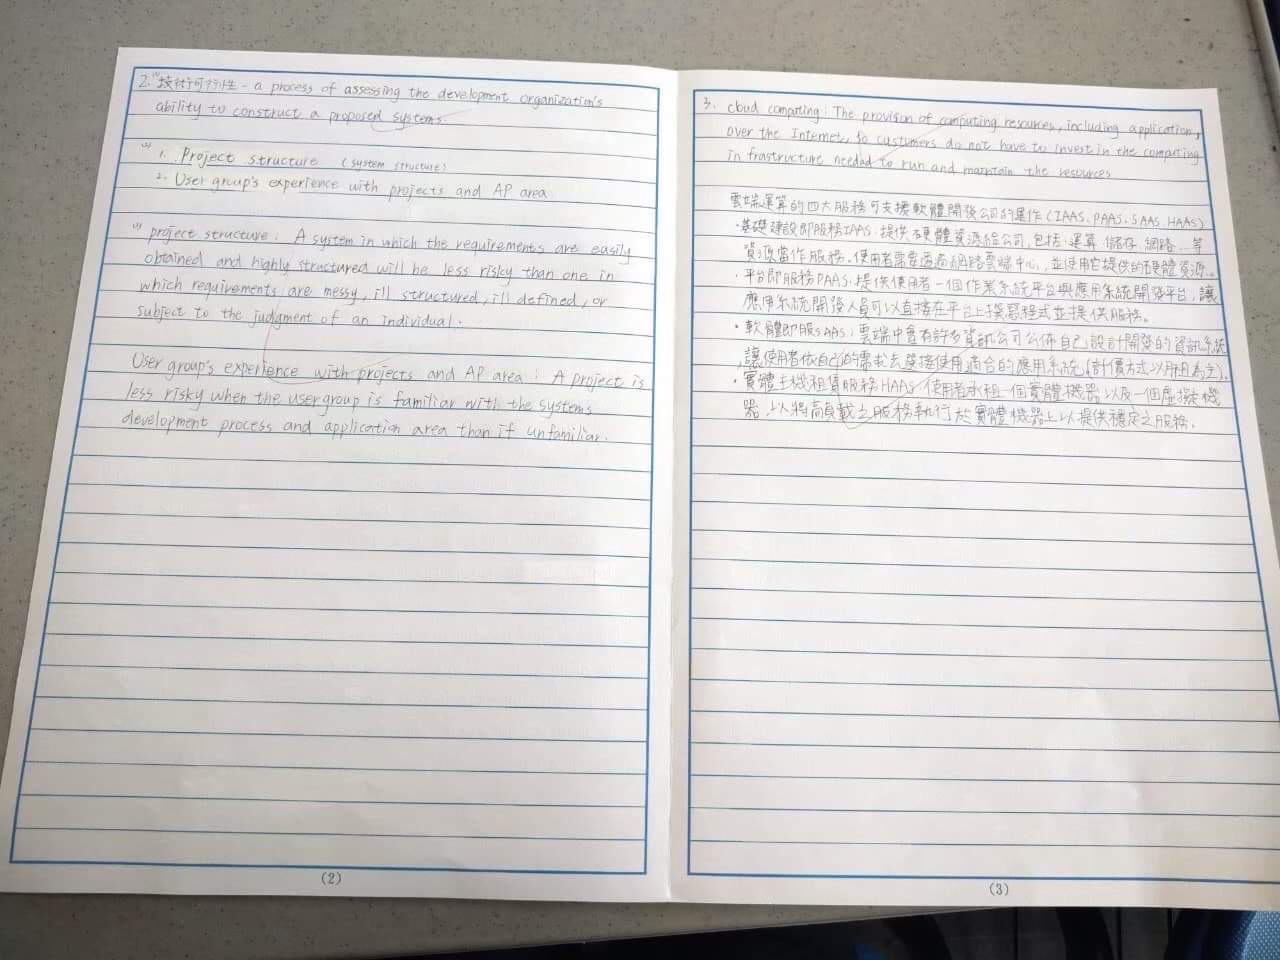 2. (1) 技術可行性 - a process of assessing the development organization's
ability to construct a proposed systems.
(2) 1. Project structure (system structure)
2. User group's experience with projects and AP area
(3) project structure : A system in which the requirements are easily
obtained and highly structured will be less risky than one in
which requirements are messy, ill structured, ill defined, or
subject to the judgment of an individual.
User group's experience with projects and AP area : A project is
less risky when the user group is familiar with the systems
development process and application area than if unfamiliar.
(2)
3. cloud computing : The provision of computing resources, including application,
over the Internet, so custumers do not have to invest in the computing
in frastructure needed to run and maintain the resources
雲端運算的四大服務可支援軟體開發公司的運作 (IAAS、PAAS、SAAS、HAAS)
·基礎建設即服務IAAS:提供硬體資源給公司,包括:運算、儲存、網路...等
資源當作服務。使用者需要透過網路雲端中心,並使用它提供的硬體資源。
·平台即服務PAAS:提供使用者一個作業系統平台與應用系統開發平台,讓
應用系統開發人員可以直接在平台上撰寫程式並提供服務。
·軟體即服SAAS:雲端中會有許多資訊公司公佈自己設計開發的資訊系統
,讓使用者依自己的需求去選擇使用適合的應用系統(計價方式以月租為主)。
·實體主機租賃服務HAAS:使用者承租一個實體機器以及一個虛擬機
器,以將高負載之服務執行於實體機器上以提供穩定之服務。
(3)